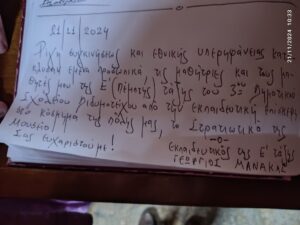 21/11/2024 10:33
21 11 2024
Ρίγη συγκινήσεως και εθνικής υπερηφάνειας και
εμένα προσωπικά, τις μαθήτριες και τους μα-
θητές μου της Ε' (πέμπτης) τάξης του 3ου Δημοτικού
Σχολείου Διδυμοτείχου από την εκπαιδευτική επίσκεψη
στο κόσμημα της πόλης μας, το Στρατιωτικό της
Μουσείο!
Σας ευχαριστούμε!
-ο-
Εκπαιδευτικός της Ε' τάξης
ΓΕΩΡΓΙΟΣ ΜΑΝΑΚΑΣ